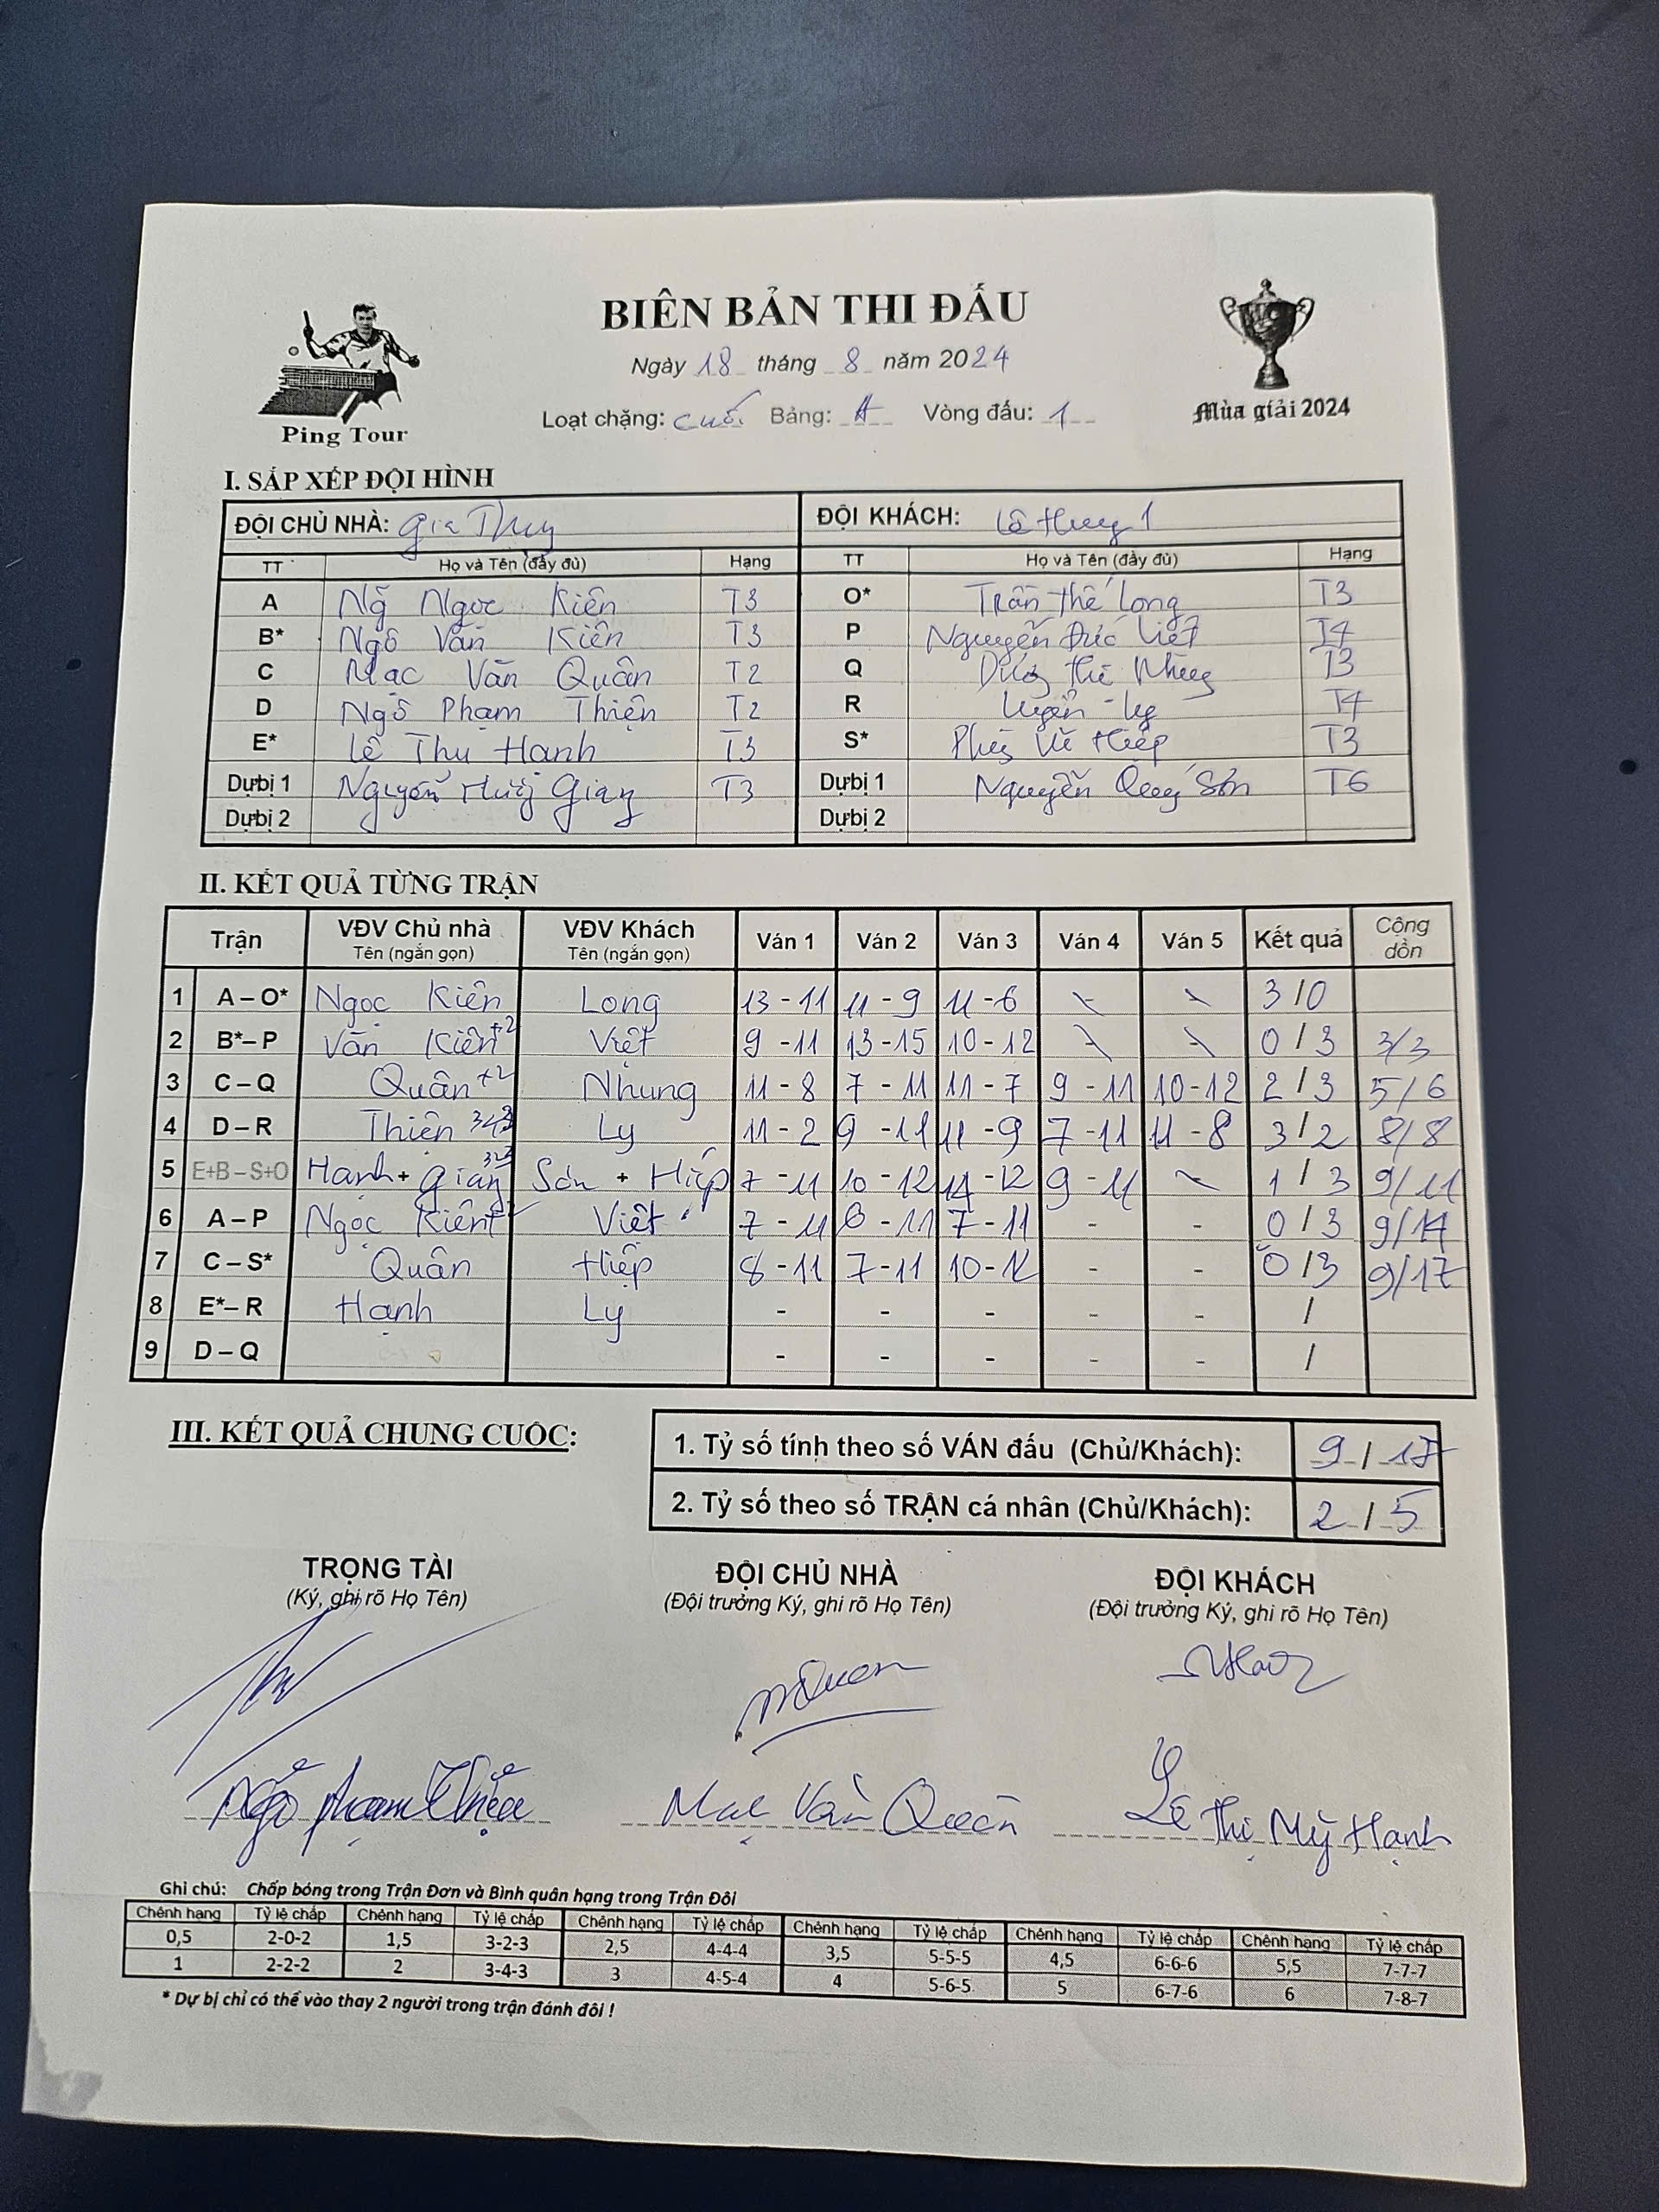 BIÊN BẢN THI ĐẤU
Ngày 18 tháng 8 năm 2024
Loạt chặng: cuối Bảng: A Vòng đấu: 1
Ping Tour
Mùa giải 2024
I. SẮP XẾP ĐỘI HÌNH
ĐỘI CHỦ NHÀ: Gia Thuy ĐỘI KHÁCH: Lê Hung 1
TT Họ và Tên (đầy đủ) Hạng TT Họ và Tên (đầy đủ) Hạng
A Ng Ngọc Kiên T3 O* Trần Thế Long T3
B* Ngô Văn Kiên T3 P Nguyễn Đức Việt T4
C Mạc Văn Quân T2 Q Nhung T3
D Ngô Phạm Thiện T2 R Ly T4
E* Lê Thu Hạnh T3 S* Hiệp T3
Dự bị 1 Nguyễn Giang T3 Dự bị 1 Nguyễn Quý Sơn T6
Dự bị 2 Dự bị 2
II. KẾT QUẢ TỪNG TRẬN
Trận VĐV Chủ nhà Tên (ngắn gọn) VĐV Khách Tên (ngắn gọn) Ván 1 Ván 2 Ván 3 Ván 4 Ván 5 Kết quả Cộng dồn
1 A – O* Ngọc Kiên Long 13 - 11 11 - 9 11 - 6 3 / 0
2 B* – P Văn Kiên +2 Việt 9 - 11 13 - 15 10 - 12 0 / 3 3/3
3 C – Q Quân +2 Nhung 11 - 8 7 - 11 11 - 7 9 - 11 10 - 12 2 / 3 5/6
4 D – R Thiện 343 Ly 11 - 2 9 - 11 11 - 9 7 - 11 11 - 8 3 / 2 8/8
5 E+B – S+O Hạnh + Giang 323 Sơn + Hiệp 7 - 11 10 - 12 14 - 12 9 - 11 1 / 3 9/11
6 A – P Ngọc Kiên Việt 7 - 11 8 - 11 7 - 11 - - 0 / 3 9/14
7 C – S* Quân Hiệp 8 - 11 7 - 11 10 - 12 - - 0 / 3 9/17
8 E* – R Hạnh Ly - - - - - /
9 D – Q - - - - - /
III. KẾT QUẢ CHUNG CUỘC:
1. Tỷ số tính theo số VÁN đấu (Chủ/Khách): 9 / 17
2. Tỷ số theo số TRẬN cá nhân (Chủ/Khách): 2 / 5
TRỌNG TÀI ĐỘI CHỦ NHÀ ĐỘI KHÁCH
(Ký, ghi rõ Họ Tên) (Đội trưởng Ký, ghi rõ Họ Tên) (Đội trưởng Ký, ghi rõ Họ Tên)
Ngô Phạm Thiện Mạc Văn Quân Lê Thị Mỹ Hạnh
Ghi chú: Chấp bóng trong Trận Đơn và Bình quân hạng trong Trận Đôi
Chênh hạng Tỷ lệ chấp Chênh hạng Tỷ lệ chấp Chênh hạng Tỷ lệ chấp Chênh hạng Tỷ lệ chấp Chênh hạng Tỷ lệ chấp Chênh hạng Tỷ lệ chấp
0,5 2-0-2 1,5 3-2-3 2,5 4-4-4 3,5 5-5-5 4,5 6-6-6 5,5 7-7-7
1 2-2-2 2 3-4-3 3 4-5-4 4 5-6-5 5 6-7-6 6 7-8-7
* Dự bị chỉ có thể vào thay 2 người trong trận đánh đôi !